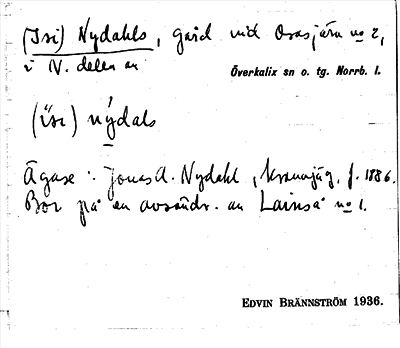 (Isi) Nydahls, gård vid Orasjärv no 2,
i N. delen av
Överkalix sn o. tg. Norrb. l.
(i̋si) nýdals
Ägare: Jonas A. Nydahl, kronojäg. f. 1886.
Bor på en avsöndr. av Lainså no 1.
EDVIN BRÄNNSTRÖM 1936.